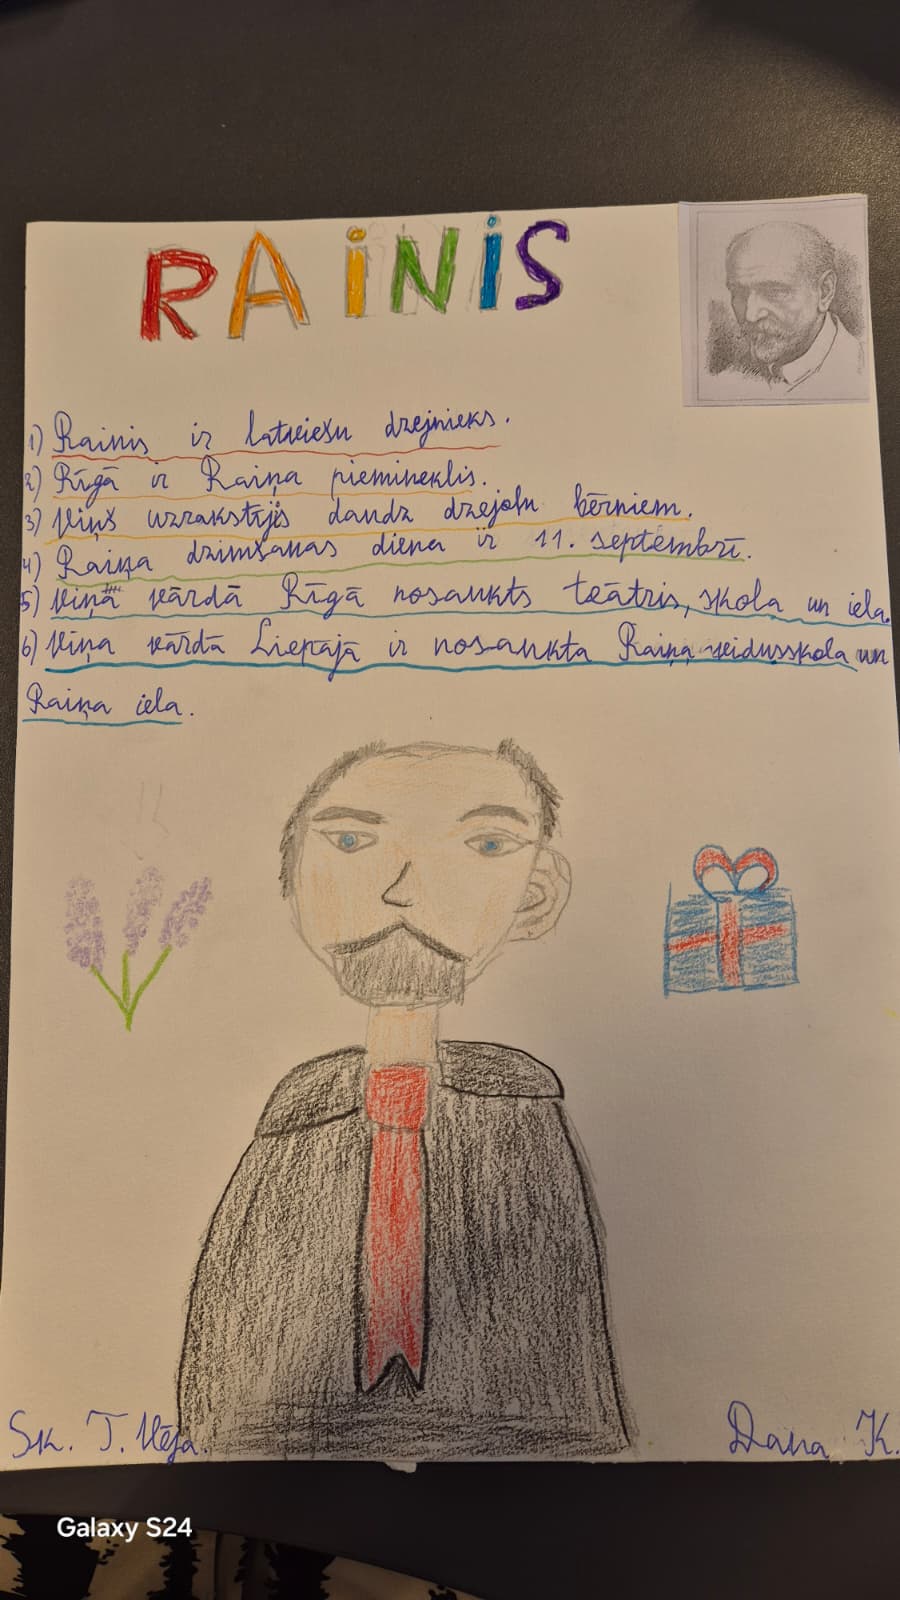 RAINIS
1) Rainis ir latviešu dzejnieks.
2) Rīgā ir Raiņa piemineklis.
3) Viņš uzrakstījis daudz dzejoļu bērniem.
4) Raiņa dzimšanas diena ir 11. septembrī.
5) Viņa vārdā Rīgā nosaukts teātris, skola un iela.
6) Viņa vārdā Liepājā ir nosaukta Raiņa vidusskola un
Raiņa iela.
Sk. T. Vēja.
Dana K.
Galaxy S24